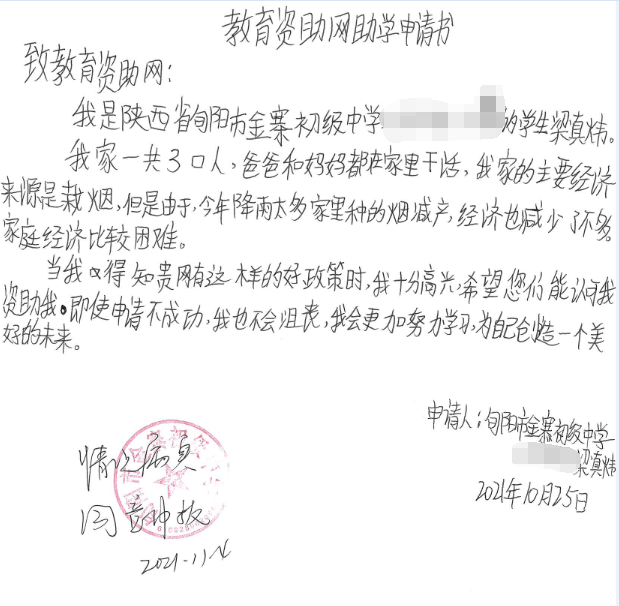 教育资助网助学申请书
致教育资助网：
我是陕西省旬阳市金寨初级中学
的学生梁真炜。
我家一共3口人，爸爸和妈妈都在家里干活，我家的主要经济
来源是栽烟，但是由于，今年降雨太多家里种的烟减产，经济也减少了不多。
家庭经济比较困难。
当我得知贵网有这样的好政策时，我十分高兴，希望您们能认可我
资助我。即使申请不成功，我也不会沮丧，我会更加努力学习，为自己创造一个美
好的未来。
申请人：旬阳市金寨初级中学
梁真炜
2021年10月25日
情况属实
2021.11.4